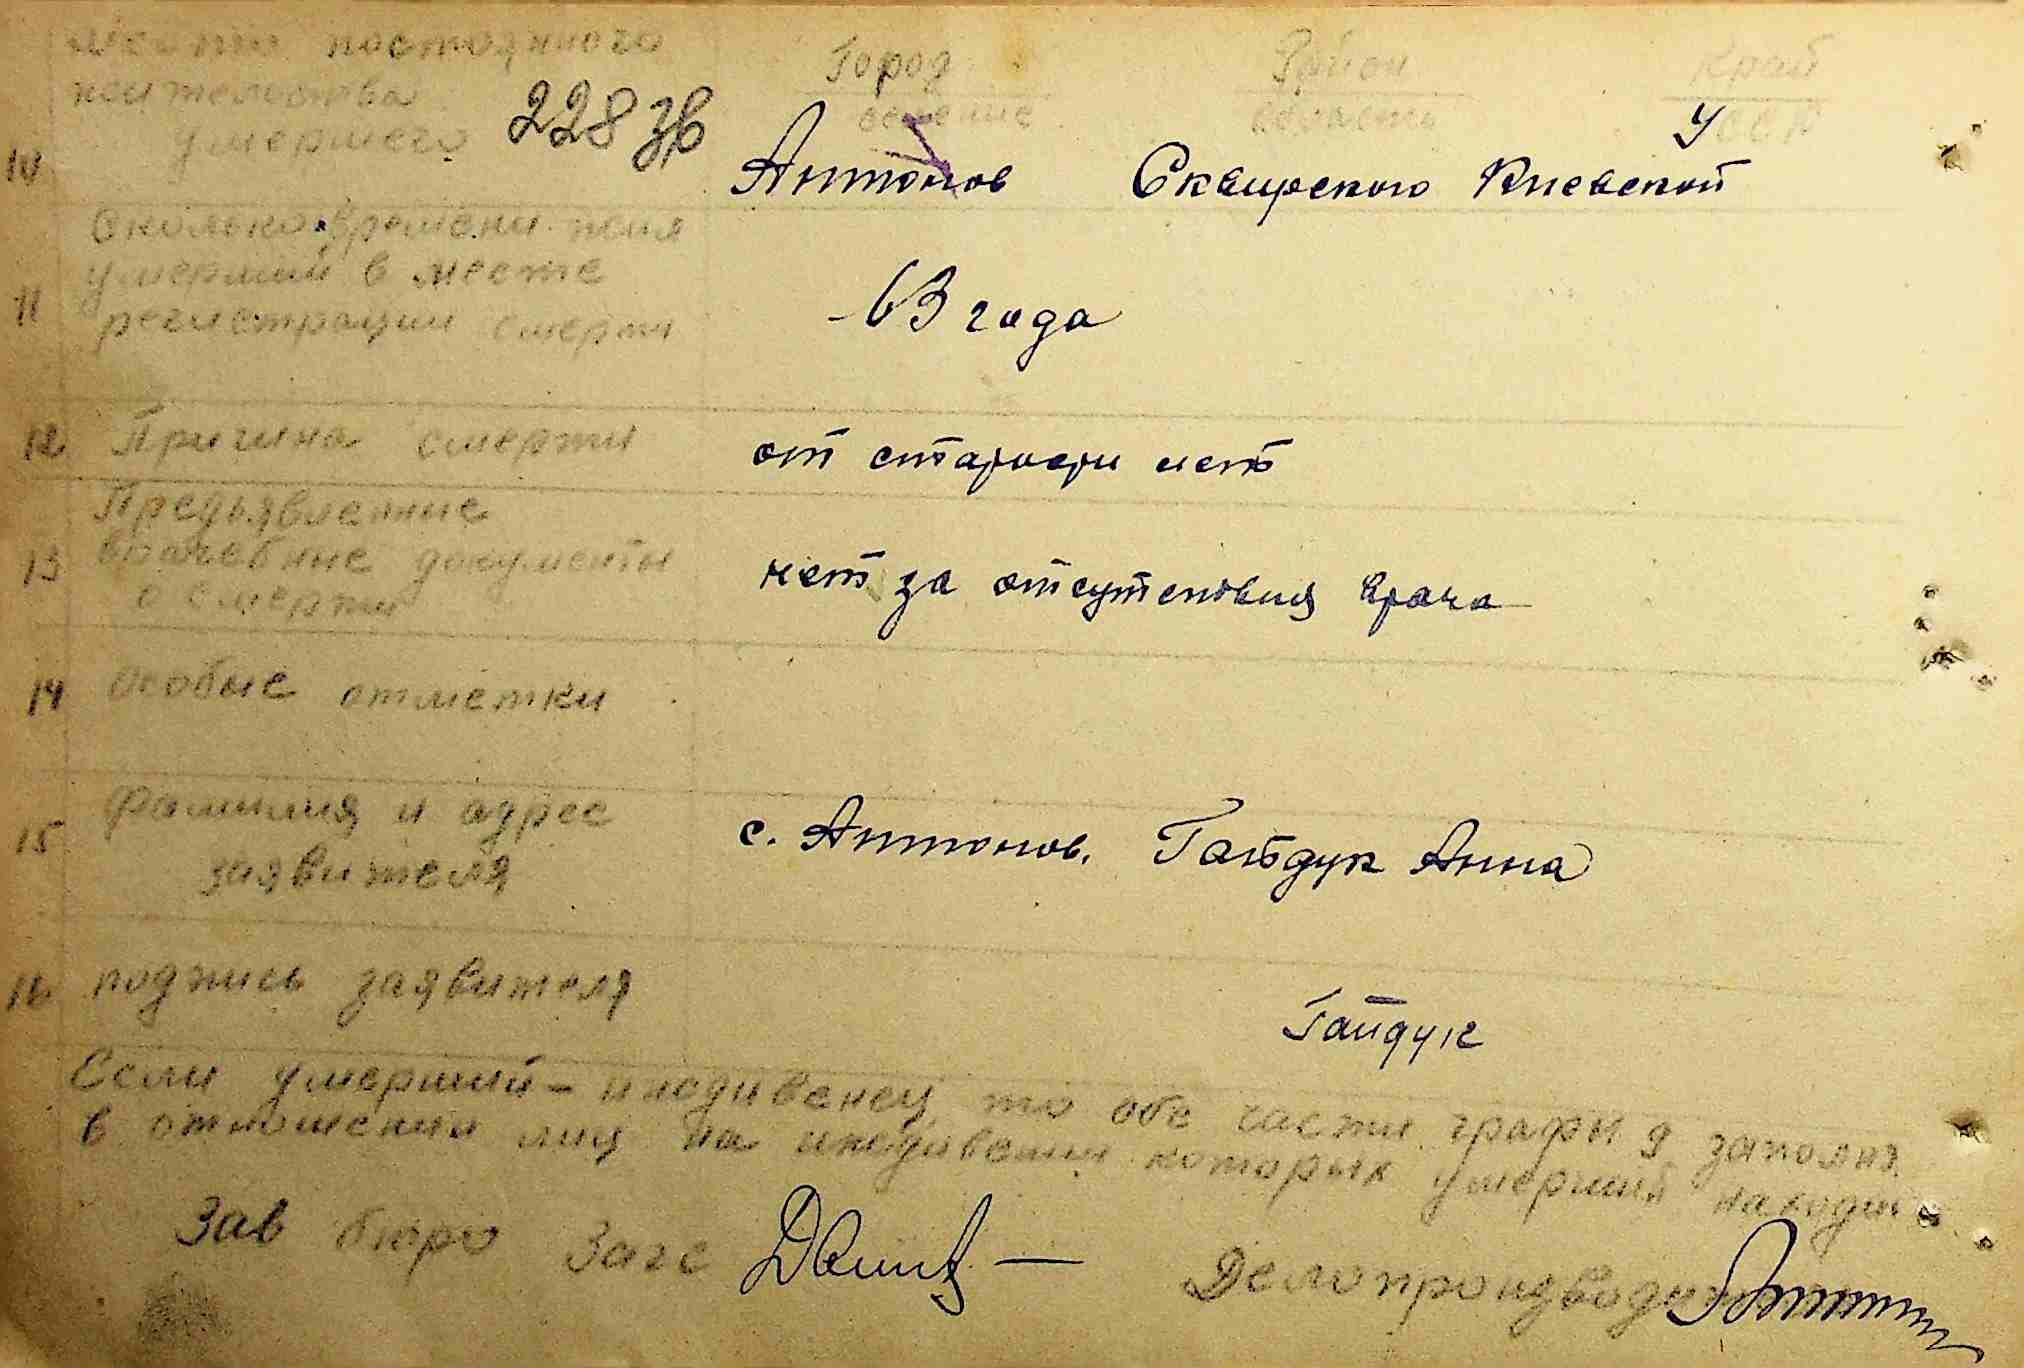 Место постоянного
жительства
умершего
228 зв
Город
селение
Район
область
Край
УССР
10
Антонов Сквирского Киевской
Сколько времени жил
умерший в месте
11
регистрации смерти
63 года
12 Причина смерти
от старости лет
Предъявленные
13 врачебные документы
о смерти
нет за отсутствия врача
14 Особые отметки
Фамилия и адрес
15
заявителя
с. Антонов. Гайдук Анна
16 подпись заявителя
Гайдук
Если умерший - иждивенец то обе части графы 9 заполня
в отношении лиц на иждивении которых умерший находи
Зав бюро Загс
Делопроизводит